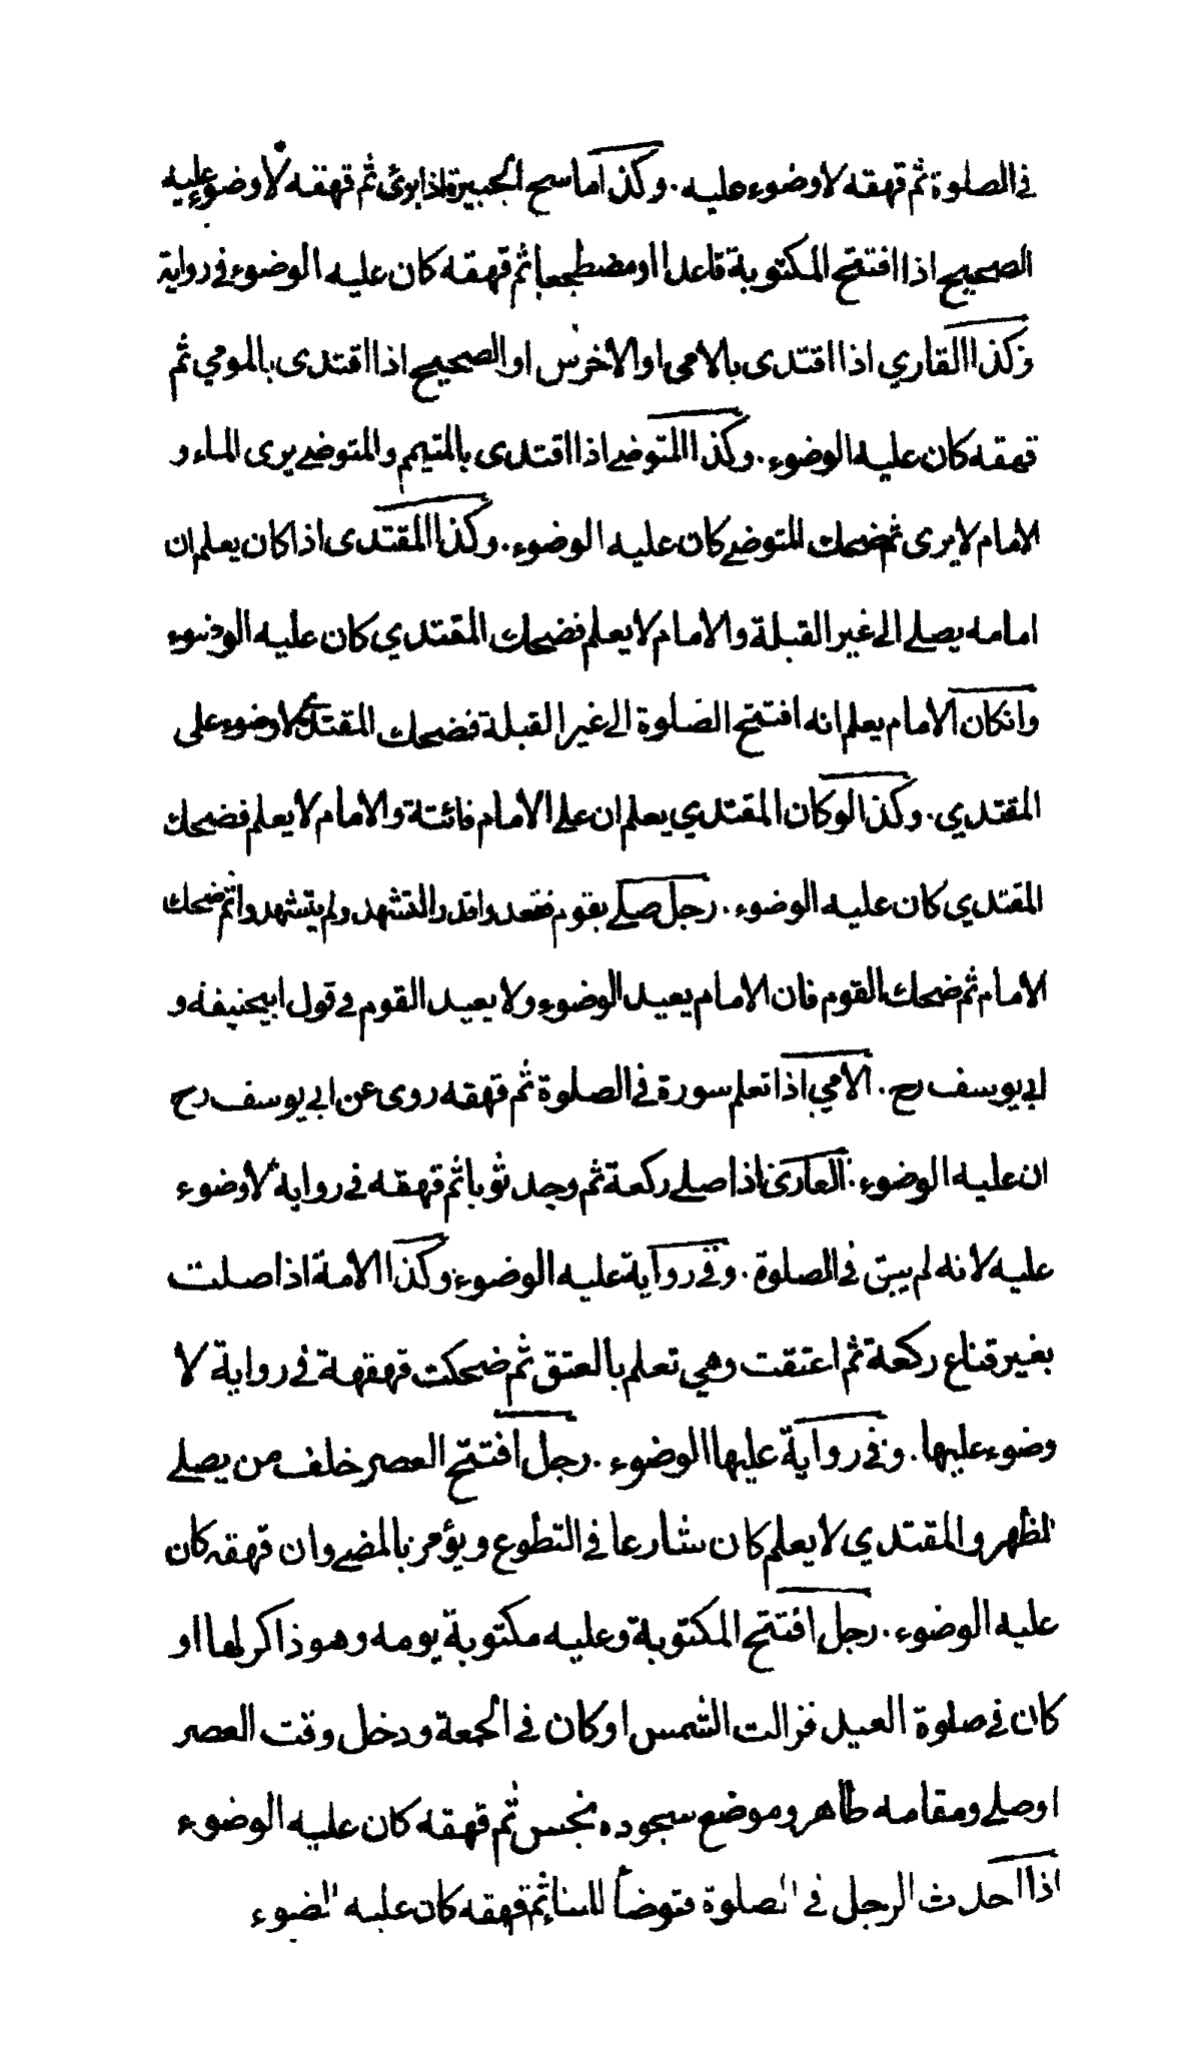 في الصلوة ثم قهقه لا وضوء عليه. وكذا ماسح الجبيرة اذا برئ ثم قهقه لا وضوء عليه
الصحيح اذا افتتح المكتوبة قاعدا او مضطجعا ثم قهقه كان عليه الوضوء في رواية
وكذا القاري اذا اقتدى بالامي او الاخرس او الصحيح اذا اقتدى بالمومي ثم
قهقه كان عليه الوضوء. وكذا المتوضي اذا اقتدى بالمتيمم والمتوضي يرى الماء و
الامام لا يرى ثم ضحك المتوضي كان عليه الوضوء. وكذا المقتدى اذا كان يعلم ان
امامه يصلي الى غير القبلة والامام لا يعلم فضحك المقتدي كان عليه الوضوء
وانكان الامام يعلم انه افتتح الصلوة الى غير القبلة فضحك المقتدي لا وضوء على
المقتدي. وكذا لو كان المقتدي يعلم ان على الامام فائتة والامام لا يعلم فضحك
المقتدي كان عليه الوضوء. رجل صلى بقوم فقعدوا قدر التشهد ولم يتشهدوا ثم ضحك
الامام ثم ضحك القوم فان الامام يعيد الوضوء ولا يعيد القوم في قول ابيحنيفة و
ابي يوسف رح. الامي اذا تعلم سورة في الصلوة ثم قهقه روى عن ابي يوسف رح
ان عليه الوضوء. العارى اذا صلى ركعة ثم وجد ثوبا ثم قهقه في رواية لا وضوء
عليه لانه لم يبق في الصلوة. وفي رواية عليه الوضوء وكذا الامة اذا صلت
بغير قناع ركعة ثم اعتقت وهي تعلم بالعتق ثم ضحكت قهقهة في رواية لا
وضوء عليها. وفي رواية عليها الوضوء. رجل افتتح العصر خلف من يصلي
الظهر والمقتدي لا يعلم كان شارعا في التطوع ويؤمر بالمضي وان قهقه كان
عليه الوضوء. رجل افتتح المكتوبة وعليه مكتوبة يومه وهو ذاكر لها او
كان في صلوة العيد فزالت الشمس او كان في الجمعة ودخل وقت العصر
او صلى ومقامه طاهر وموضع سجوده نجس ثم قهقه كان عليه الوضوء
اذا احدث الرجل في الصلوة فتوضأ للبناء ثم قهقه كان عليه الوضوء